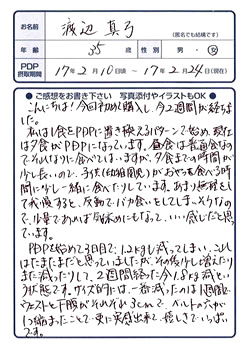 お名前 渡辺 真弓
(匿名でも結構です)
年齢 35歳 性別 男・女
PDP摂取期間 17年2月10日頃 ~ 17年2月24日(現在)
● ご感想をお書き下さい 写真添付やイラストもOK ●
こんにちは!今回初めて購入し、今2週間が経ちました。
私は1食をPDPに置き換えるパターンで始め、現在
は夕食がPDPになっています。昼食は普通食なの
でそれなりに食べてはいますが、夕食までの時間が
少し長いので、3才代(幼稚園児)がおやつを食べる時
間に少し一緒に食べたりしています。あまり無理をし
て我慢すると、反動でバカ食いをしてしまいそうなの
で、少量であれば気休めにもなって、いい感じだと思っ
ています。
PDPを始めて3日目で、1.2kgも減ってしまい、これ
はたまたまだと思っていましたが、その後少し増えたり
また減ったりして、2週間経った今1.8kg減とい
う状態です。サイズ的には、一番減ったのは1週間で
ウエストと下腹がそれぞれ3cmで、ベルトの穴が
1つ縮まったことで更に実感出来て、嬉しさでいっぱい
です。